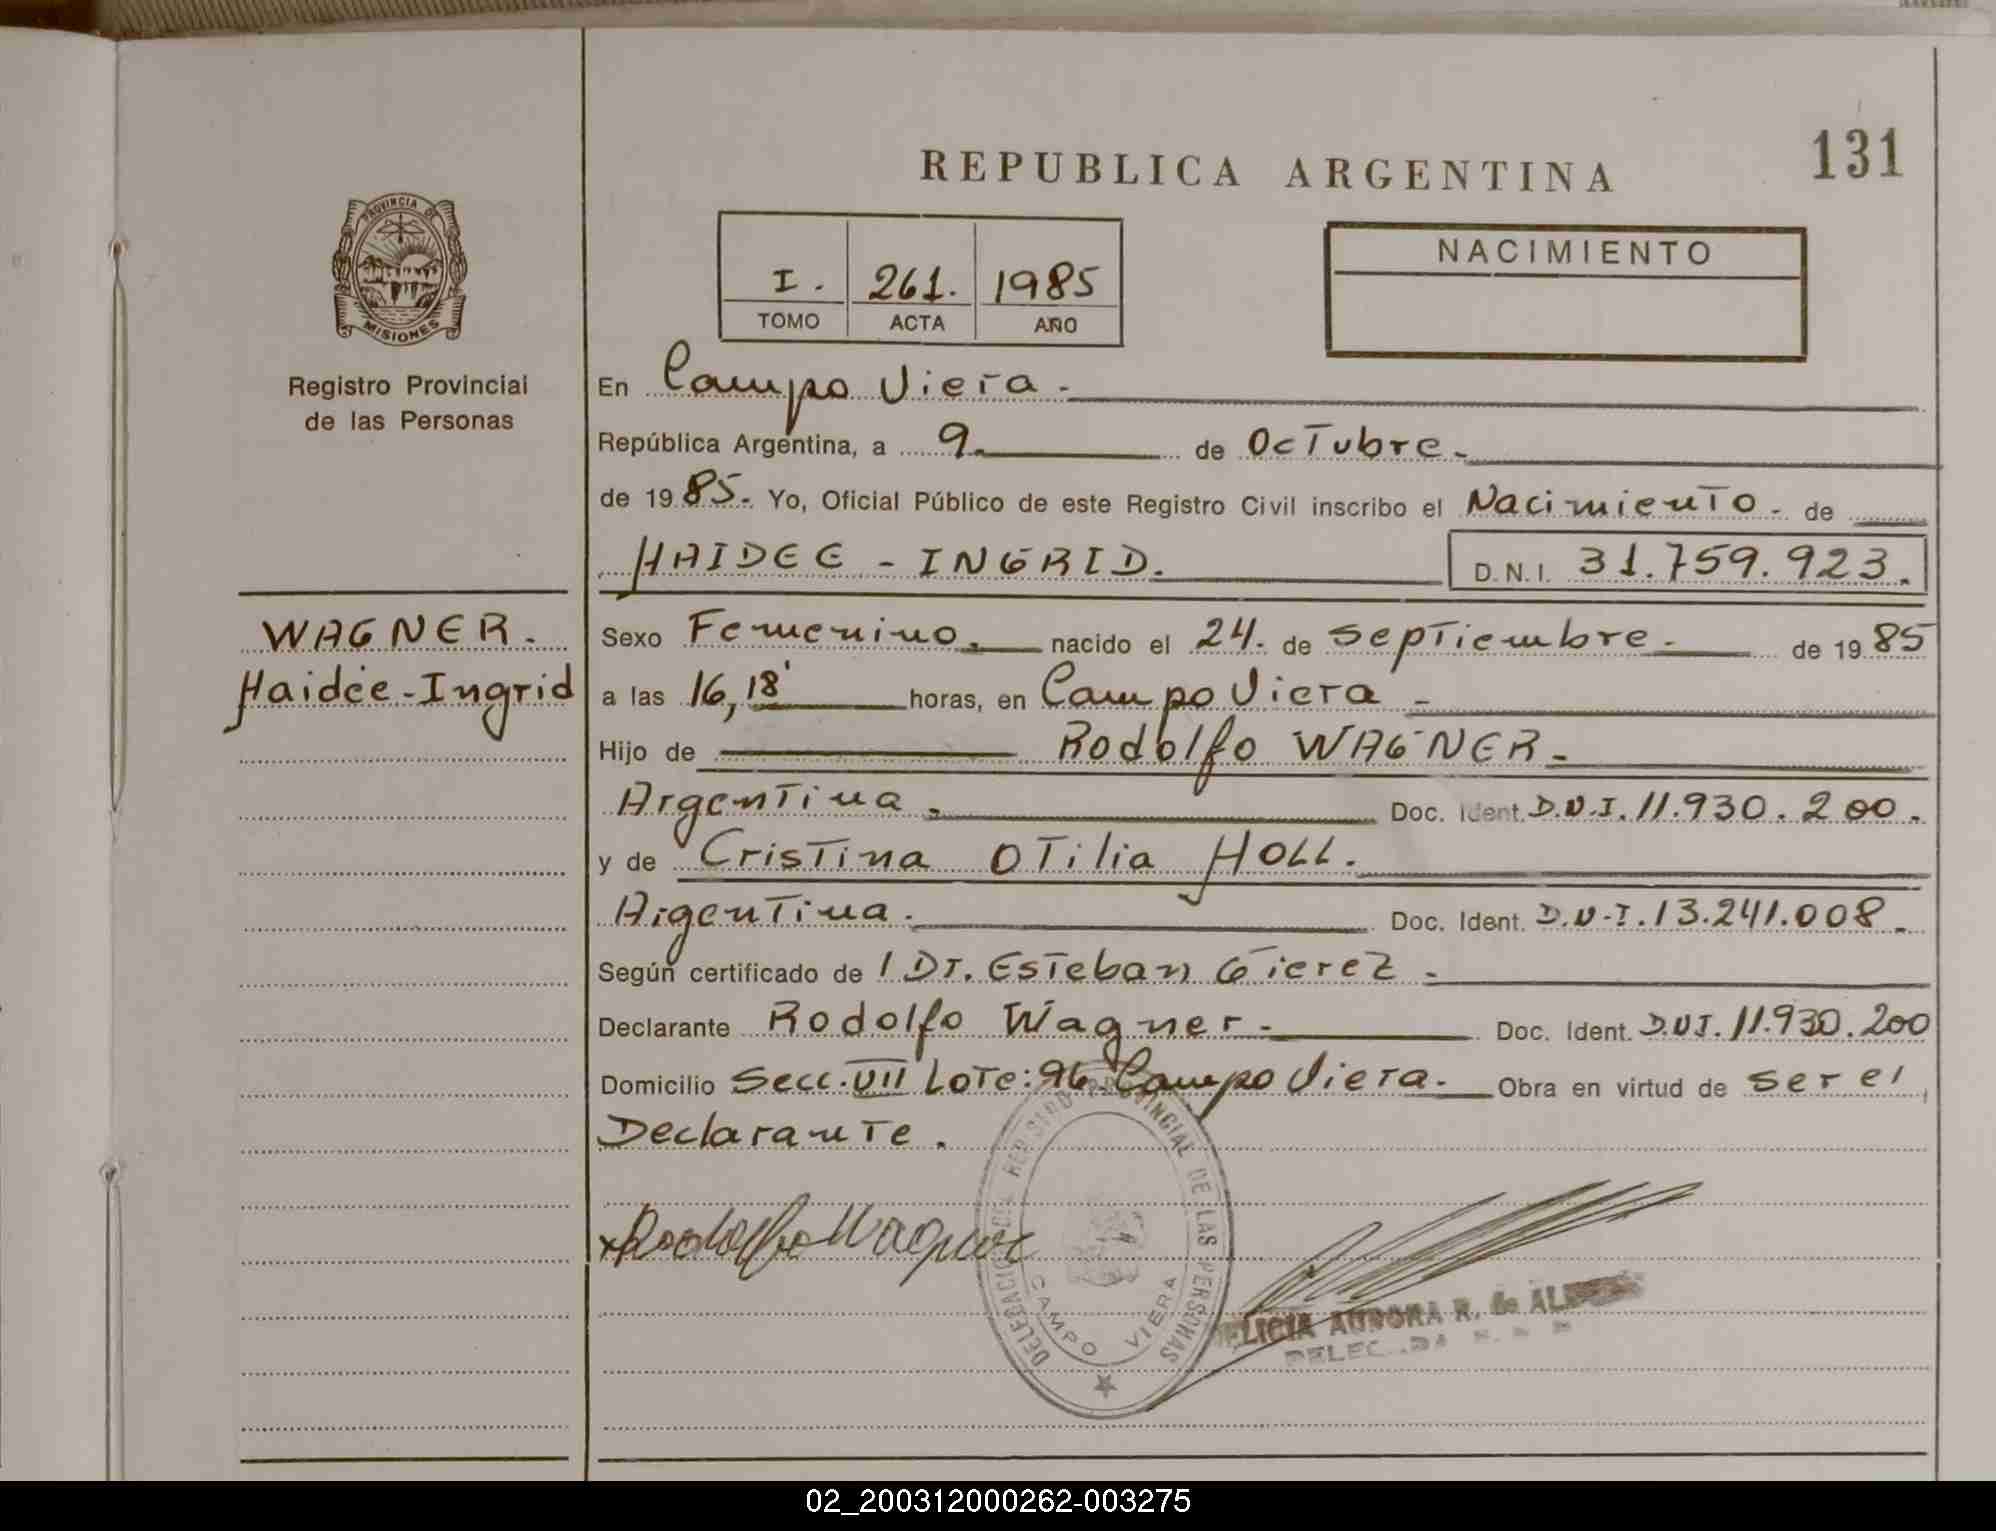 131
REPUBLICA ARGENTINA
PROVINCIA DE
MISIONES
Registro Provincial
de las Personas
I. 261. 1985
TOMO ACTA AÑO
NACIMIENTO
En Campo Viera.
República Argentina, a 9. de Octubre.
de 1985. Yo, Oficial Público de este Registro Civil inscribo el Nacimiento. de
HAIDEE - INGRID. D.N.I. 31.759.923.
WAGNER.
Haidée-Ingrid
Sexo Femenino. nacido el 24. de Septiembre. de 1985
a las 16,18' horas, en Campo Viera
Hijo de Rodolfo WAGNER.
Argentina. Doc. Ident. D.N.I. 11.930.200.
y de Cristina Otilia HOLL.
Argentina. Doc. Ident. D.N.I. 13.241.008.
Según certificado de Dr. Esteban
Declarante Rodolfo Wagner. Doc. Ident. D.N.I. 11.930.200
Domicilio Secc. VII Lote: 96 Campo Viera. Obra en virtud de ser el
Declarante.
Rodolfo Wagner
DELEGACION REGISTRO PROVINCIAL DE LAS PERSONAS
CAMPO VIERA
AURORA R. de
02_200312000262-003275